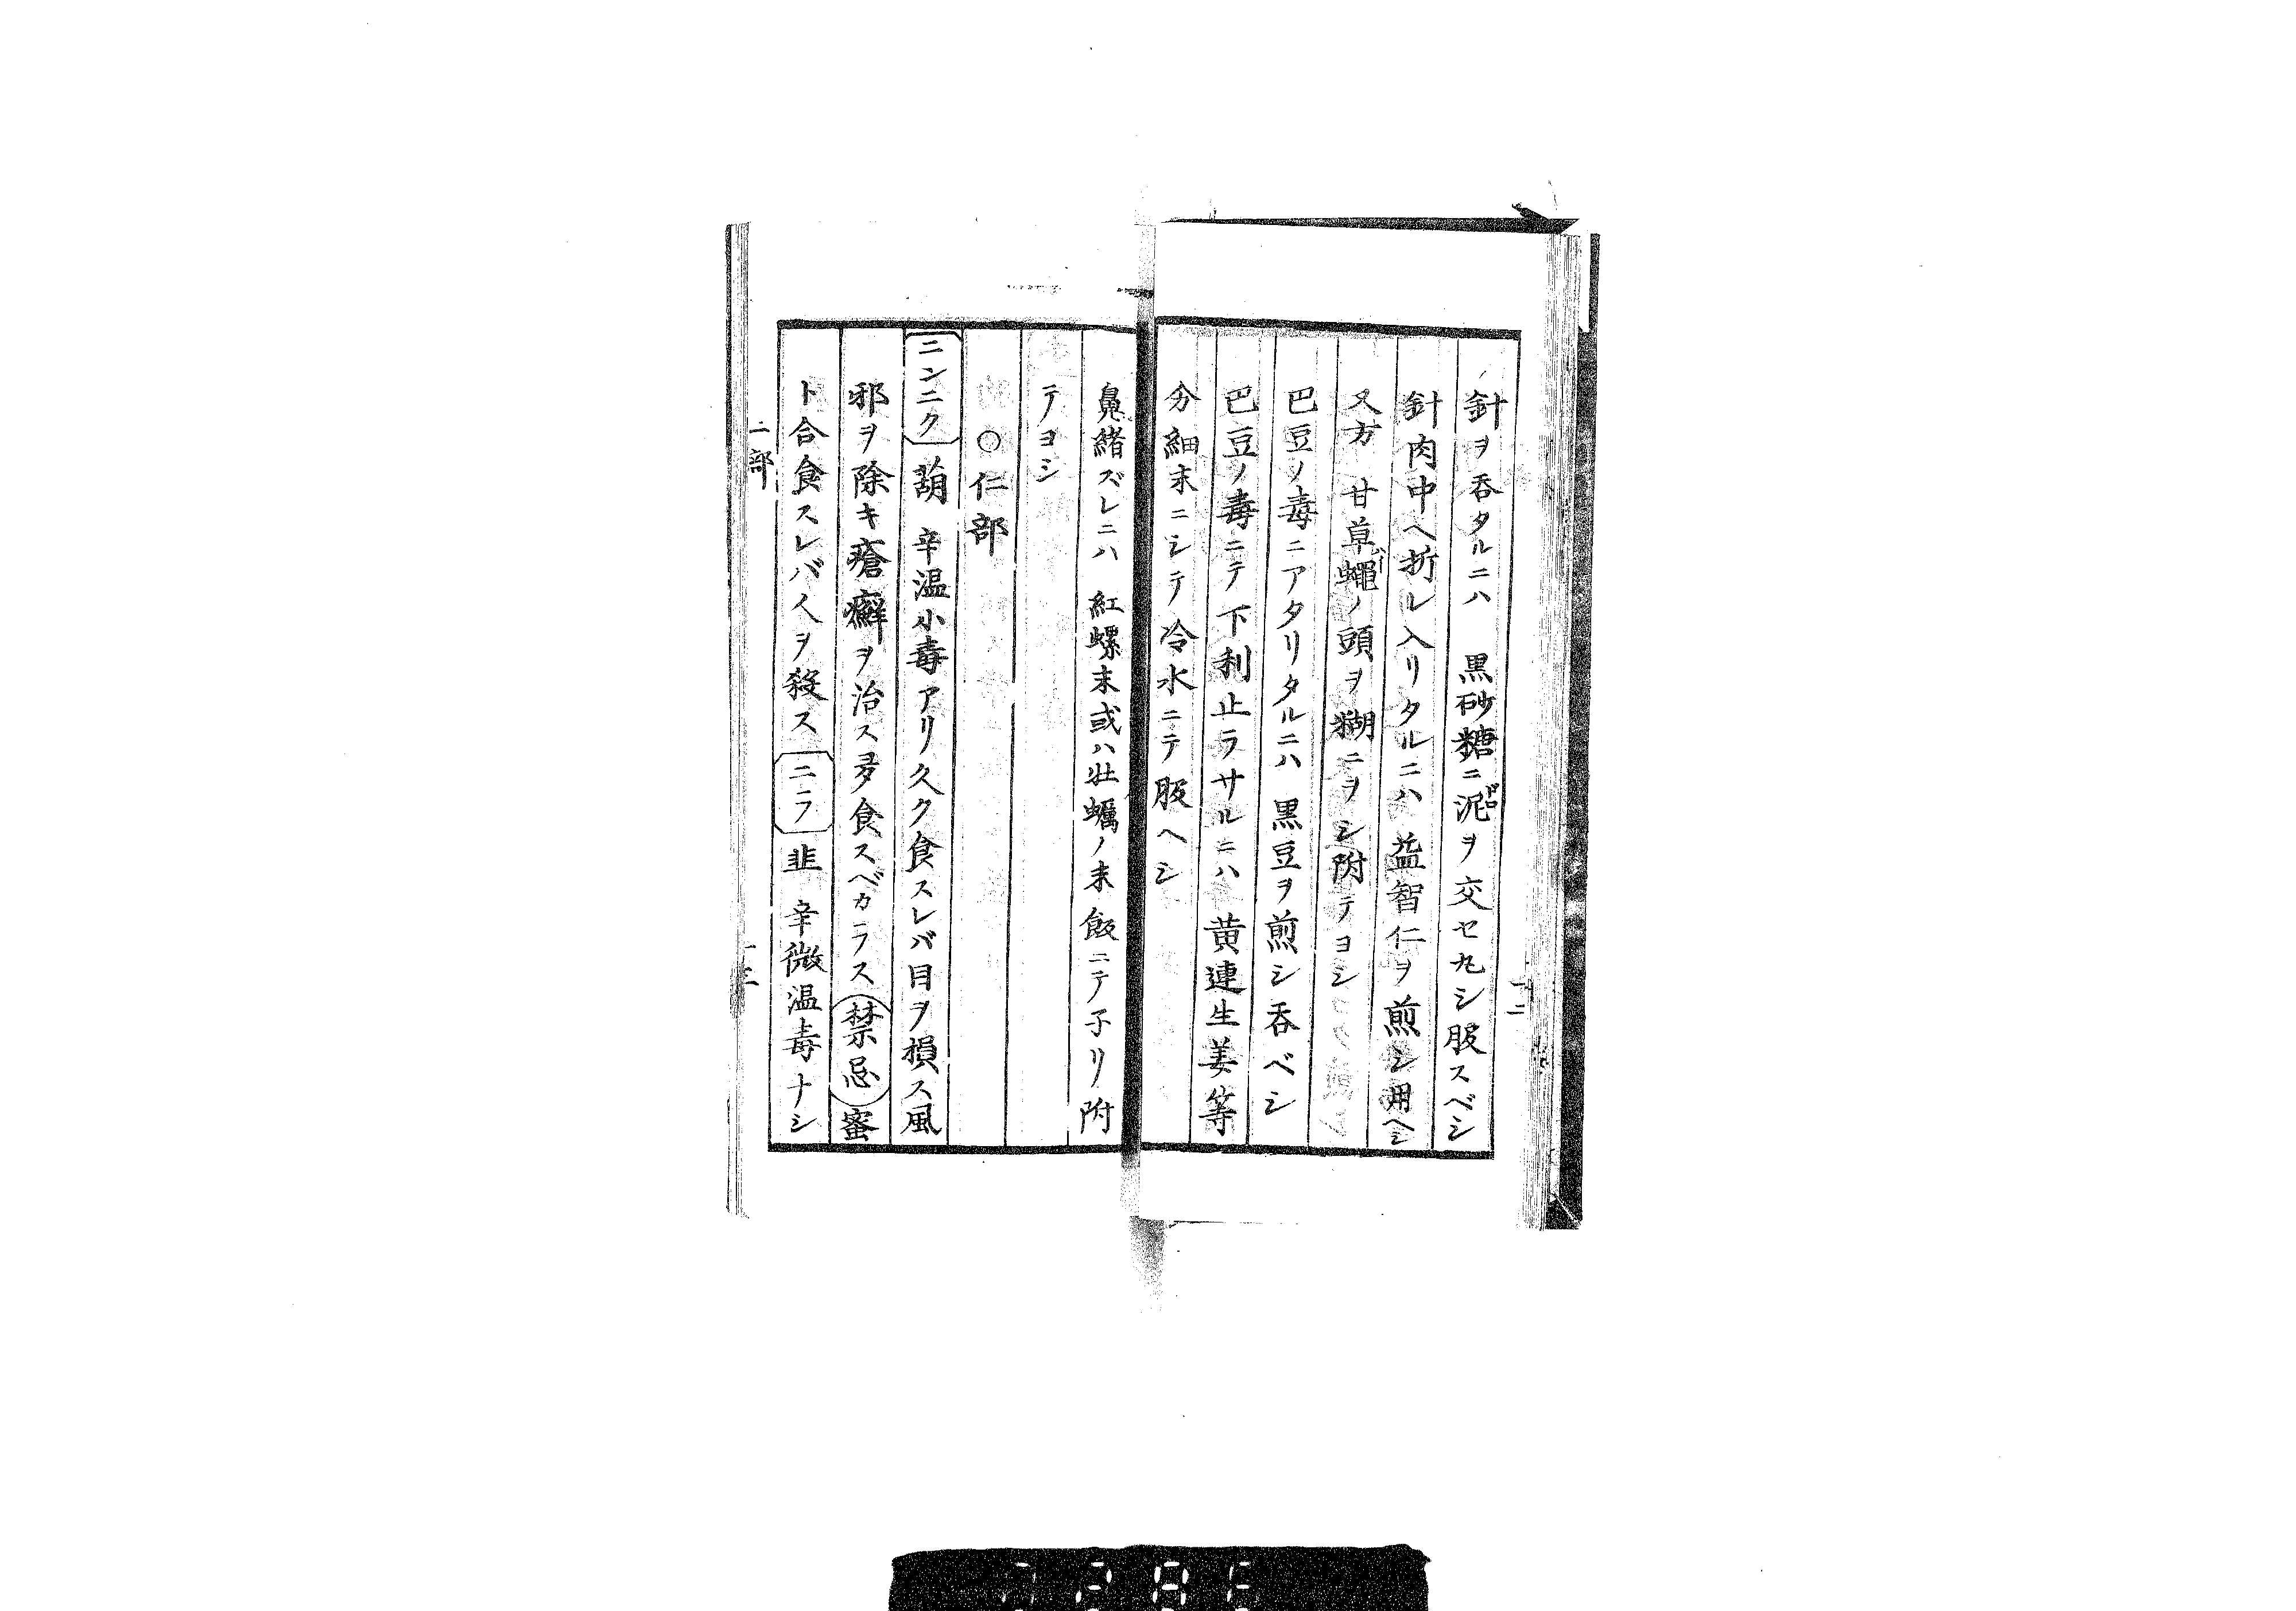 針ヲ呑タルニハ　黒砂糖ニ泥ヲ交セ丸シ服スベシ
針肉中ヘ折レ入リタルニハ　益智仁ヲ煎シ用ヘシ
又方　甘草蠅ノ頭ヲ糊ニヲシ附テヨシ
巴豆ノ毒ニアタリタルニハ　黒豆ヲ煎シ呑ベシ
巴豆ノ毒ニテ下利止ラサルニハ　黄連生姜等
分細末ニシテ冷水ニテ服ヘシ
十二
鼻緒ズレニハ　紅螺末或ハ牡蠣ノ末飯ニテ子リ附
テヨシ
○仁部
ニンニク　葫　辛温小毒アリ久ク食スレバ目ヲ損ス風
邪ヲ除キ瘡癬ヲ治ス多食スベカラス　禁忌　蜜
ト合食スレバ人ヲ殺ス　ニラ　韭　辛微温毒ナシ
ニ部
十三